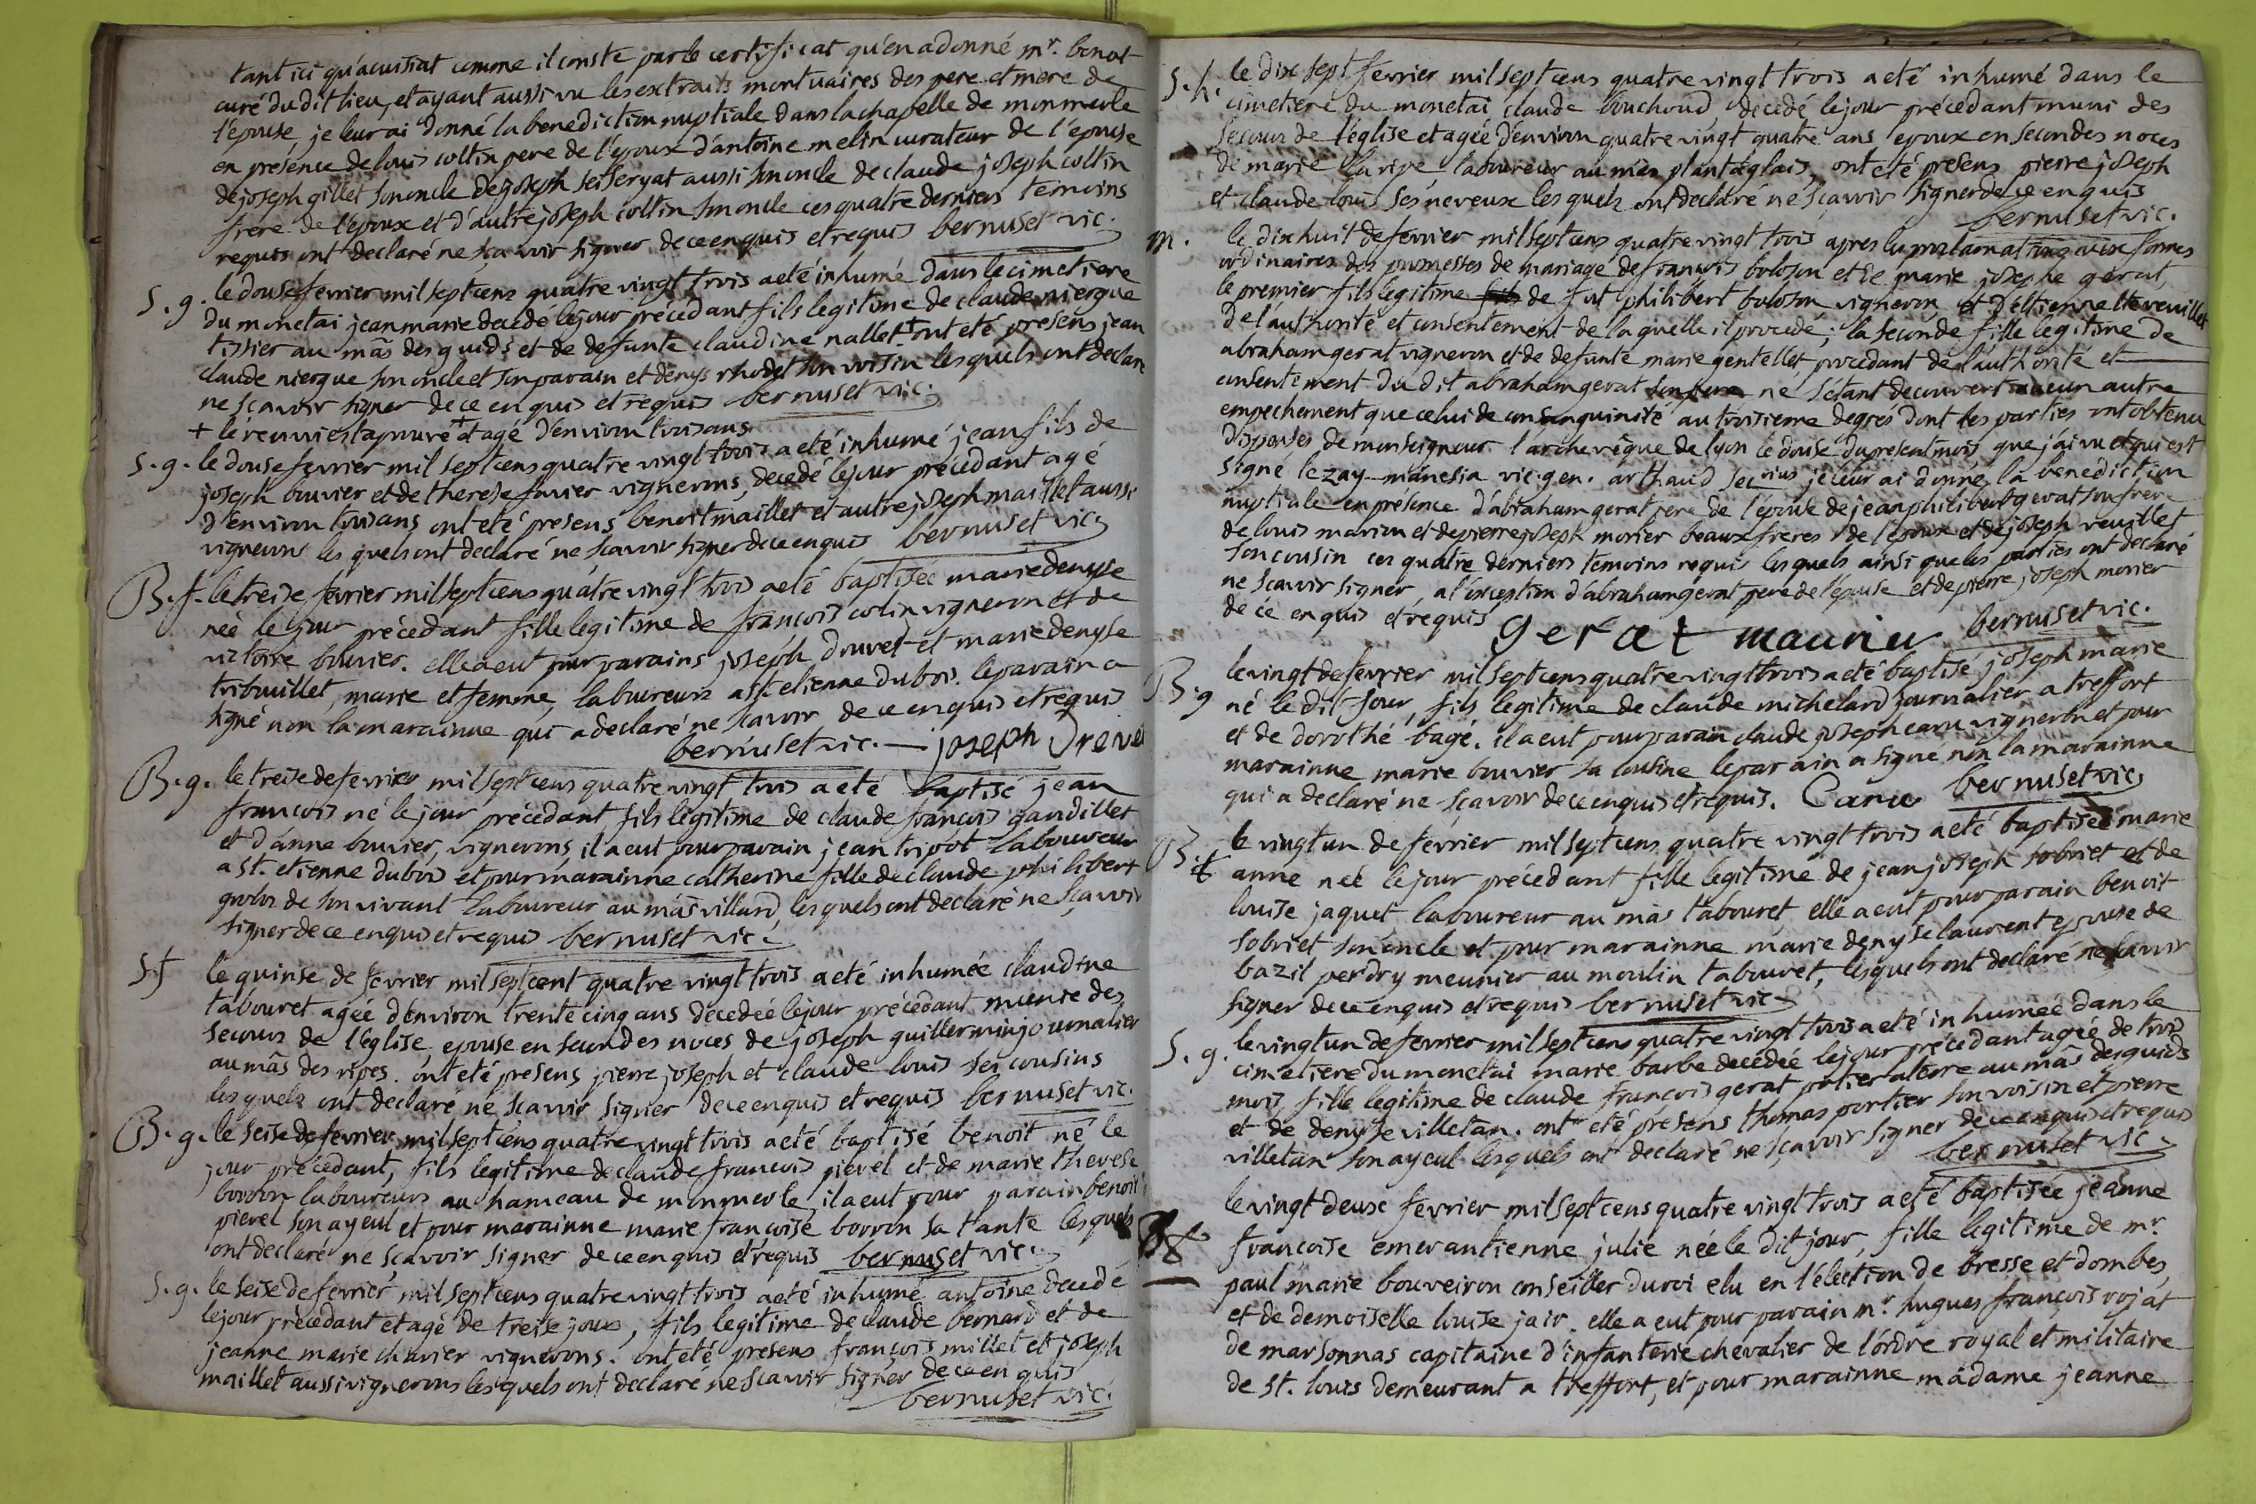 tant ici qu'a cuisiat comme il conste par le certificat qu'en a donné mr. benoit
curé du dit lieu, et ayant aussi vu les extraits mortuaires des pere et mere de
l'epouse, je leur ai donné la benediction nuptiale dans la chapelle de monmerle
en presence de louis coltin pere de l'epoux d'antoine melin curateur de l'epouse
de joseph gillet son oncle de joseph aussi son oncle de claude joseph coltin
frere de l'epoux et d'autre joseph coltin son oncle ces quatre derniers temoins
requis ont declaré ne sçavoir signer de ce enquis et requis bernuset vic.
S. g. le douse fevrier mil sept cens quatre vingt trois a eté inhumé dans le cimetiere
du monetai jean marie decedé le jour précedant fils legitime de claude niergue
tissier au mas des guids et de defunte claudine nallet + ont eté presens jean
claude niergue son oncle et son parain et denys rhodet son voisin les quels ont declaré
ne sçavoir signer de ce enquis et requis bernuset vic.
+ le renvoi est aprouvé + agé d'environ trois ans
S. g. le douse fevrier mil sept cens quatre vingt trois a eté inhumé jean fils de
joseph bouvier et de therese favier vignerons, decedé le jour précedant agé
d'environ trois ans ont eté presens benoit maillet et autre joseph maillet aussi
vignerons les quels ont declaré ne sçavoir signer de ce enquis bernuset vic.
B. f. le treise fevrier mil sept cens quatre vingt trois a eté baptisée marie denyse
neé le jour précedant fille legitime de françois colin vigneron et de
victoire bouvier. elle a eut pour parains joseph drevet et marie denyse
tribouillet, marie et femme, laboureurs a st. etienne du bois. le parain a
signé non la marainne qui a declaré ne sçavoir de ce enquis et requis
bernuset vic. — joseph Dreve
B. g. le treise de fevrier mil sept cens quatre vingt trois a eté baptisé jean
françois né le jour précedant fils legitime de claude françois gandillet
et d'anne bouvier, vignerons, il a eut pour parain jean tripot laboureur
a st. etienne du bois et pour marainne catherine fille de claude philibert
de son vivant laboureur au mas villard, les quels ont declaré ne sçavoir
signer de ce enquis et requis bernuset vic.
S. f le quinse de fevrier mil sept cent quatre vingt trois a eté inhumée claudine
tabouret ageé d'environ trente cinq ans decedeé le jour précedant munie des
secours de l'eglise, epouse en secondes noces de joseph guillermin journalier
au mas des ripes. ont eté presens pierre joseph et claude louis ses cousins
les quels ont declaré ne sçavoir signer de ce enquis et requis bernuset vic.
B. g. le seise de fevrier mil sept cens quatre vingt trois a eté baptisé benoit né le
jour précedant, fils legitime de claude françois pierel et de marie therese
borron laboureurs au hameau de monmerle, il a eut pour parain benoit
pierel son ayeul et pour marainne marie françoise borron sa tante les quels
ont declaré ne sçavoir signer de ce enquis et requis bernuset vic.
S. g. le seise de fevrier mil sept cens quatre vingt trois a eté inhumé antoine decedé
le jour précedant et agé de treise jours, fils legitime de claude bernard et de
jeanne marie vignerons. ont eté presens françois millet et joseph
maillet aussi vignerons les quels ont declaré ne sçavoir signer de ce enquis
bernuset vic.
S. h. le dix sept fevrier mil sept cens quatre vingt trois a eté inhumé dans le
cimetiere du monetai claude bouchoud decedé le jour précedant muni des
secours de l'église et ageé d'environ quatre vingt quatre ans epoux en secondes noces
de marie laripe, laboureur au mas plantaglais, ont eté presens pierre joseph
et claude louis ses neveux les quels ont declaré ne sçavoir signer de ce enquis
bernuset vic.
m. le dix huit de fevrier mil sept cens quatre vingt trois apres la proclamation aux formes
ordinaires des promesses de mariage de françois boloson et de marie josephe gerat,
le premier fils legitime de fut philibert boloson vigneron et d'estiennette reuillet
de l'authorité et consentement de la quelle il procede; la seconde fille legitime de
abraham gerat vigneron et de defunte marie gentellet, procedant de l'authorité et
consentement du dit abraham gerat son pere ne s'etant decouvert aucun autre
empechement que celui de consanguinité au troisieme degres dont les parties ont obtenu
dispenses de monseigneur l'archevêque de lyon le douse du present mois que j'ai vu et qui est
signé lezay-manesia vic. gen. arthaud secrius je leur ai donné la benediction
nuptiale en présence d'abraham gerat pere de l'epouse de jean philibert gerat son frere
de louis marion et de pierre joseph morier beaux freres de l'epoux et de joseph reuillet
son cousin ces quatre derniers temoins requis les quels ainsi que les parties ont declaré
ne sçavoir signer, a l'exception d'abraham gerat pere de l'epouse et de pierre joseph morier
de ce enquis et requis gerat maurier bernuset vic.
B. g le vingt de fevrier mil sept cens quatre vingt trois a eté baptisé joseph marie
né le dit jour, fils legitime de claude michelard journalier a treffort
et de dorothé bagé. il a eut pour parain claude joseph caru vigneron et pour
marainne marie bouvier sa cousine le parain a signé non la marainne
qui a declaré ne sçavoir de ce enquis et requis. Caru bernuset vic
B. f le vingt un de fevrier mil sept cens quatre vingt trois a eté baptiseé marie
anne neé le jour précedant fille legitime de jean joseph sobriet et de
louise jaquet laboureur au mas tabouret, elle a eut pour parain benoit
sobriet son oncle et pour marainne marie denyse laurent epouse de
bazil perdry meunier au moulin tabouret, les quels ont declaré ne sçavoir
signer de ce enquis et requis bernuset vic
S. g. le vingt un de fevrier mil sept cens quatre vingt trois a eté inhumeé dans le
cimetiere du monetai marie barbe decedée le jour précedant ageé de trois
mois, fille legitime de claude françois gerat potier a terre au mas des guids
et de denyse villetan. ont eté présens thomas portier son voisin et pierre
villetan son ayeul les quels ont declaré ne sçavoir signer de ce enquis et requis
bernuset vic
le vingt deux fevrier mil sept cens quatre vingt trois a eté baptisée jeanne
françoise emerantienne julie née le dit jour, fille legitime de mr.
paul marie bouveiron conseiller du roi elu en l'élection de bresse et dombes
et de demoiselle louise jair. elle a eut pour parain mr. hugues françois rojat
de marsonnas capitaine d'infanterie chevalier de l'ordre royal et militaire
de st. louis demeurant a treffort, et pour marainne madame jeanne